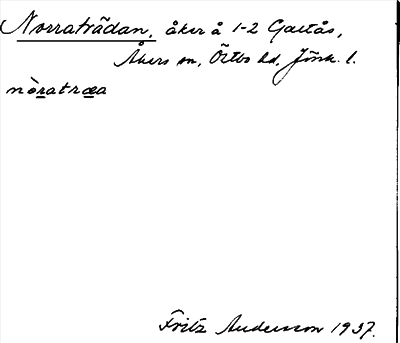 Norraträdan, åker å 1-2 Galtås,
Åkers sn, Östbo hd, Jönk. l.
nòratræa
Fritz Andersson 1937.